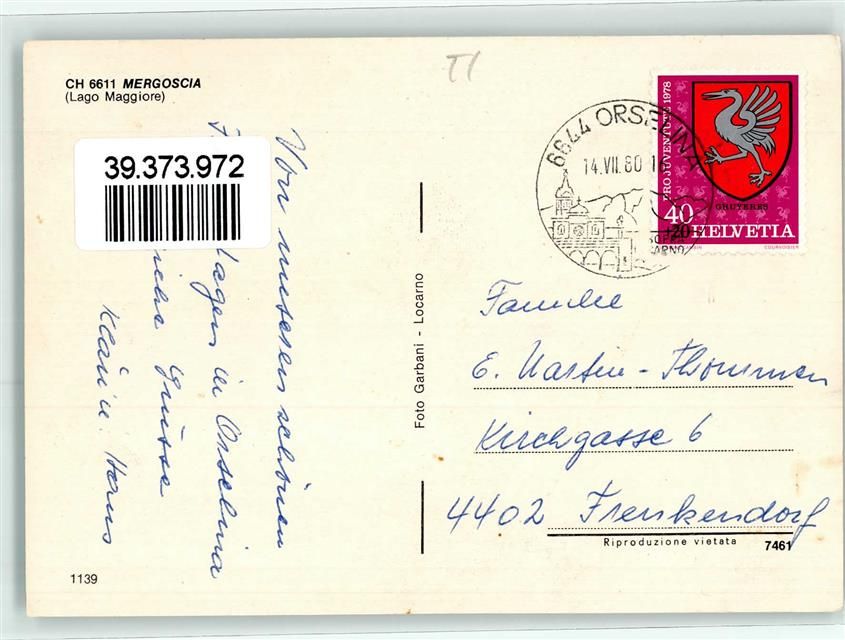 CH 6611 MERGOSCIA
(Lago Maggiore)
39.373.972
Von unseren schönen
Tagen in Orselina
Grüsse
Hans
1139
Foto Garbani - Locarno
TI
6644 ORSELINA
14.VII.80 16
PRO JUVENTUTE 1978
GRUYERES
40
+20
HELVETIA
COURVOISIER
Familie
E. Martin - Thommen
Kirchgasse 6
4402 Frenkendorf
Riproduzione vietata
7461